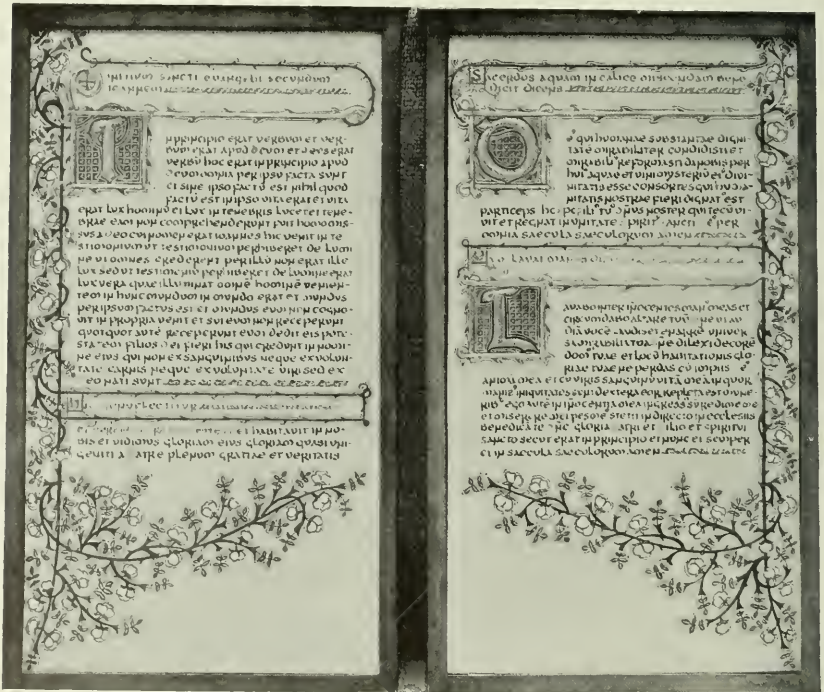 INITIUM SANCTI EVANGELII SECUNDUM
IOANNEM
IN PRINCIPIO ERAT VERBUM ET VER-
BUM ERAT APUD DEUM ET DEUS ERAT
VERBŪ HOC ERAT IN PRINCIPIO APUD
DEUM OMNIA PER IPSŪ FACTA SUNT
ET SINE IPSO FACTŪ EST NIHIL QUOD
FACTŪ EST IN IPSO VITA ERAT ET VITA
ERAT LUX HOMINŪ ET LUX IN TENEBRIS LUCET ET TENE-
BRAE EAM NON COMPREHENDERUNT FUIT HOMO MIS-
SUS A DEO CUI NOMEN ERAT IOANNES HIC VENIT IN TE
STIMONIUM UT TESTIMONIUM PERHIBERET DE LUMI
NE UT OMNES CREDERENT PER ILLŪ NON ERAT ILLE
LUX SED UT TESTIMONIŪ PERHIBERET DE LUMINE ERAT
LUX VERA QUAE ILLUMINAT OMNĒ HOMINĒ VENIEN-
TEM IN HUNC MUNDUM IN MUNDO ERAT ET MUNDUS
PER IPSUM FACTUS EST ET MUNDUS EUM NON COGNO-
VIT IN PROPRIA VENIT ET SUI EUM NON RECEPERUNT
QUOTQUOT AUTĒ RECEPERUNT EUM DEDIT EIS POTE-
STATEM FILIOS DEI FIERI HIS QUI CREDUNT IN NOMI-
NE EIUS QUI NON EX SANGUINIBUS NEQUE EX VOLUN-
TATE CARNIS NEQUE EX VOLUNTATE VIRI SED EX
EO NATI SUNT
ET HABITAVIT IN NO-
BIS ET VIDIMUS GLORIAM EIUS GLORIAM QUASI UNI-
GENITI A PATRE PLENUM GRATIAE ET VERITATIS
SACERDOS AQUAM IN CALICE MISCENDAM BENE
DICIT DICENS
QUI HUMANAE SUBSTANTIAE DIGNI
TATĒ MIRABILITER CONDIDISTI ET
MIRABILI REFORMASTI DA NOBIS PER
HUI AQUAE ET VINI MYSTERIŪ EI DIVI-
NITATIS ESSE CONSORTES QUI HUMA-
NITATIS NOSTRAE FIERI DIGNAT EST
PARTICEPS NOSTER QUI TECŪ VI-
VIT ET REGNAT IN UNITATE PER
OMNIA SAECULA SAECULORUM AMEN
LAVABO INTER INOCENTES MAN MEAS ET
CIRCUMDABO ALTARE TUŪ
UT AUDIĀ VOCĒ LAUDIS ET ENARRĒ UNIVER
SA MIRABILIA TUA DILEXI DECORĒ
DOM TUAE ET LOCŪ HABITATIONIS GLO-
RIAE TUAE NE PERDAS CŪ IMPIIS
ANIMĀ MEA ET CŪ VIRIS SANGUINŪ VITĀ MEĀ IN QUOR
MANIB INIQUITATES SUNT DEXTERA EOR REPLETA EST MUNE-
RIB EGO AUTĒ IN INOCENTIA MEA INGRESS SŪ REDIME ME
ET MISERE MEI PES ME STETIT IN DIRECTO IN ECCLESIIS
BENEDICĀ TE GLORIA PATRI ET FILIO ET SPIRITUI
SANCTO SICUT ERAT IN PRINCIPIO ET NUNC ET SEMPER
ET IN SAECULA SAECULORUM AMEN